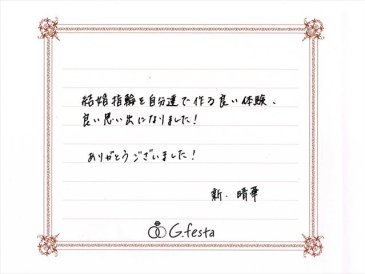 結婚指輪を自分達で作る良い体験、
良い思い出になりました!
ありがとうございました!
新・晴華
G.festa